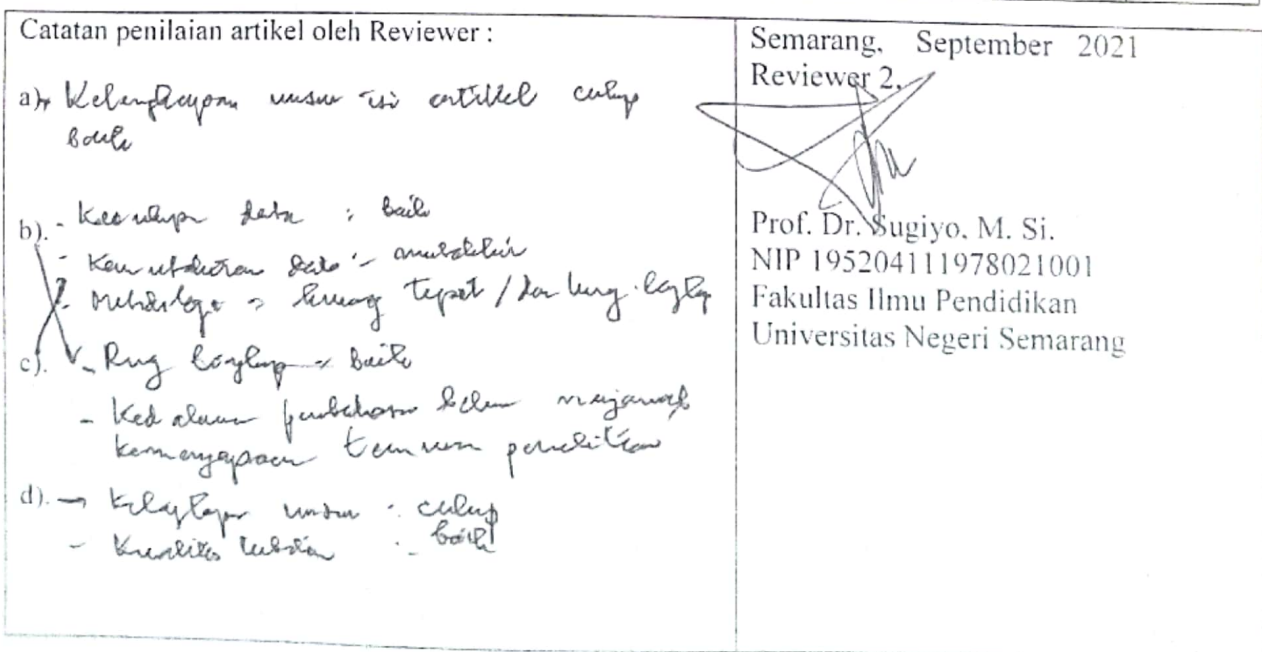 Catatan penilaian artikel oleh Reviewer :
a) Kelengkapan unsur isi artikel cukup
baik
b). - Kecukupan data : baik
- Kemutakhiran data : mutakhir
- Metodologi : kurang tepat / dan kurang lengkap
c). - Ruang lingkup : baik
- Kedalaman pembahasan belum menjawab
kemengapaan temuan penelitian
d). → Kelengkapan unsur : cukup
- Kualitas terbitan : baik
Semarang, September 2021
Reviewer 2,
Prof. Dr. Sugiyo. M. Si.
NIP 195204111978021001
Fakultas Ilmu Pendidikan
Universitas Negeri Semarang